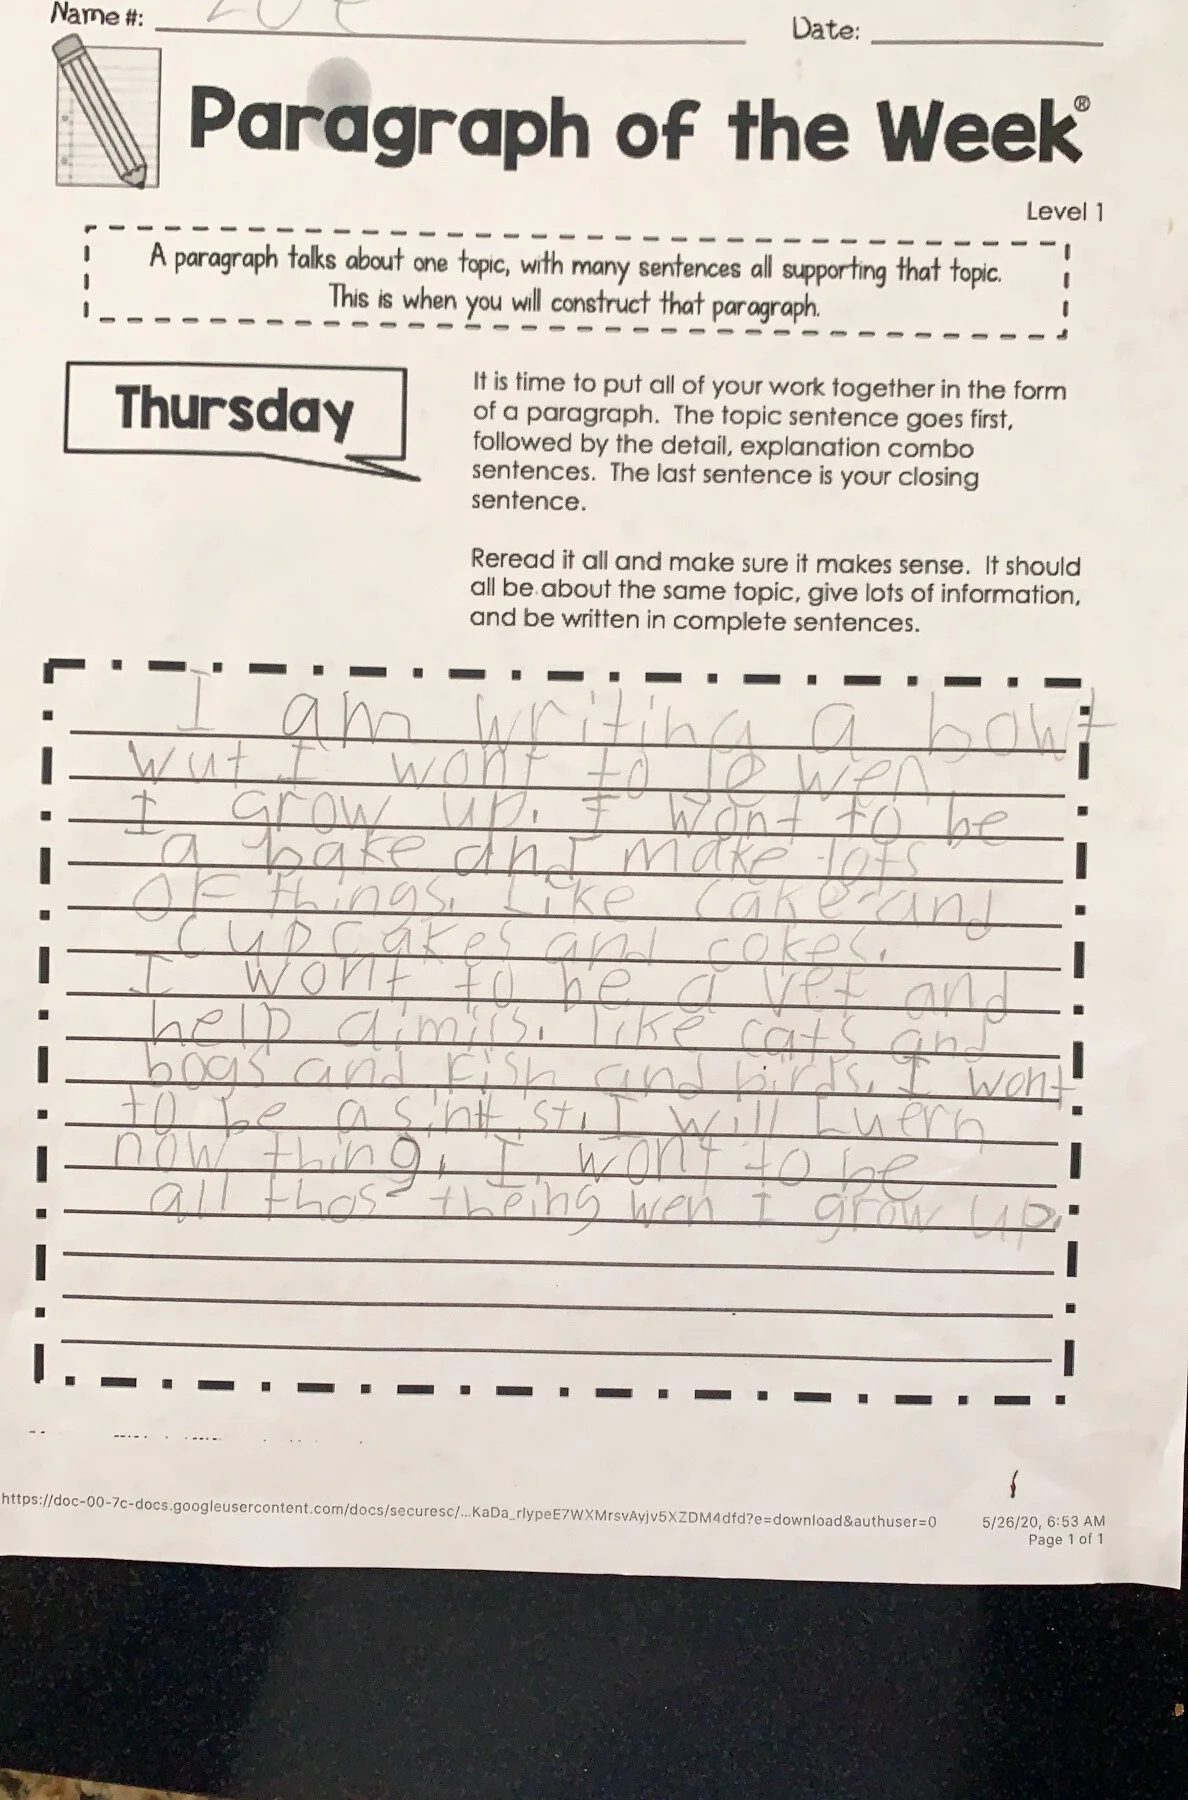 Name #: Zoe
Date:
Paragraph of the Week®
Level 1
A paragraph talks about one topic, with many sentences all supporting that topic.
This is when you will construct that paragraph.
Thursday
It is time to put all of your work together in the form
of a paragraph. The topic sentence goes first,
followed by the detail, explanation combo
sentences. The last sentence is your closing
sentence.
Reread it all and make sure it makes sense. It should
all be about the same topic, give lots of information,
and be written in complete sentences.
I am writing a bowt
wut I wont to be wen
I grow up. I wont to be
a bake and make lots
of things. Like cake and
cupcakes and cokes.
I wont to be a vet and
help aimils. like cats and
bogs and fish and birds. I wont
to be a sintist. I will Luern
now thing. I wont to be
all thos theing wen I grow up.
https://doc-00-7c-docs.googleusercontent.com/docs/securesc/...KaDa_rlypeE7WXMrsvAyjv5XZDM4dfd?e=download&authuser=0
5/26/20, 6:53 AM
Page 1 of 1